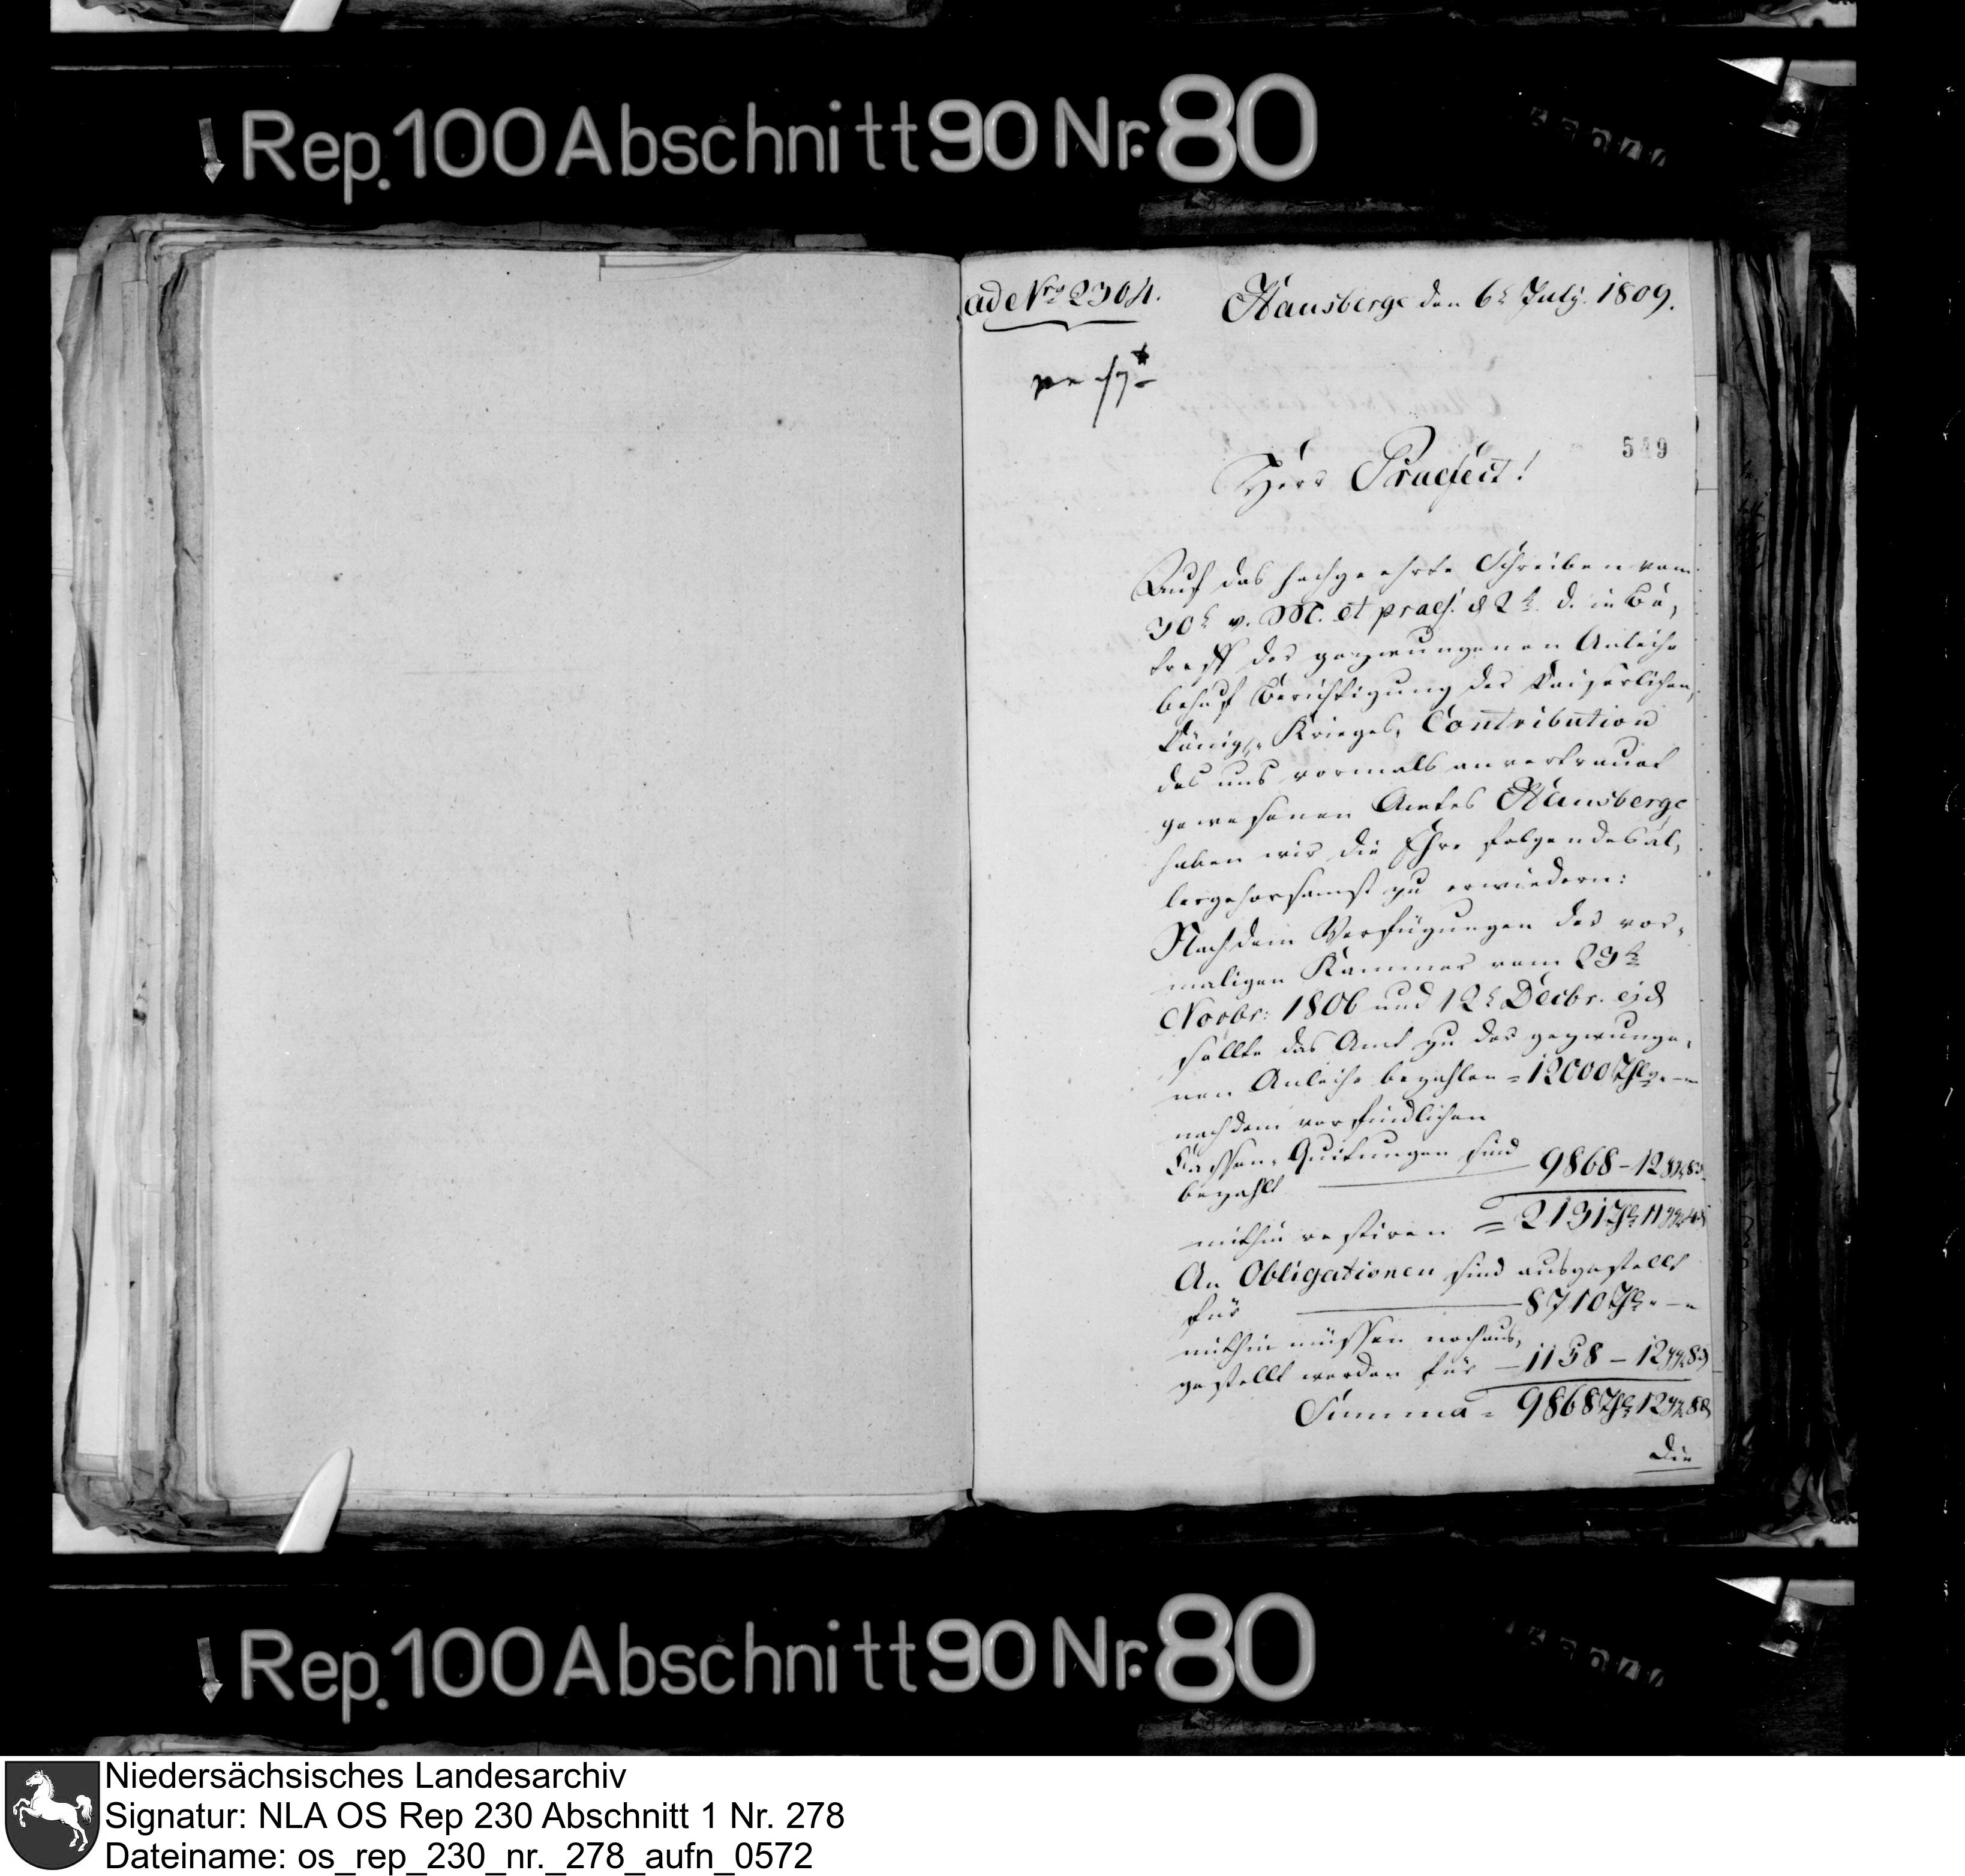 Rep. 100 Abschnitt 90 Nr. 80
ad Nro 2304.
Hausberge den 6t July. 1809.
Herr Praefect!
Auf das hochgeehrte Schreiben vom
30t v. M. et praes. d 2t. d. in Be,
treff der gezwungenen Anleihe
behuf Berichtigung der Kaiserlichen,
Königl. Krieges, Contribution
des uns vormals anvertraut
gewesenen Amtes Hausberge
haben wir die Ehre folgendes al,
lergehorsamst zu erwiedern:
Nach dem Verfügungen der vor,
maligen Kammer vom 29t
Novbr: 1806 und 12t Decbr. ejd
sollte das Amt zu der gezwunge,
nen Anleihe bezahlen = 12000 Thlr. -
nach dem vorfindlichen
Cassen, Quitungen sind
bezahlt 9868 - 12 ggr 8 d
mithin restiren = 2131 Thlr 11 ggr 4 d
An Obligationen sind ausgestellt
für 8710 Thlr - -
mithin müssen noch aus,
gestellt werden für - 1158 - 12 ggr 8 d
Summa = 9868 Thlr 12 ggr 8 d
Die
Rep. 100 Abschnitt 90 Nr. 80
Niedersächsisches Landesarchiv
Signatur: NLA OS Rep 230 Abschnitt 1 Nr. 278
Dateiname: os_rep_230_nr._278_aufn_0572